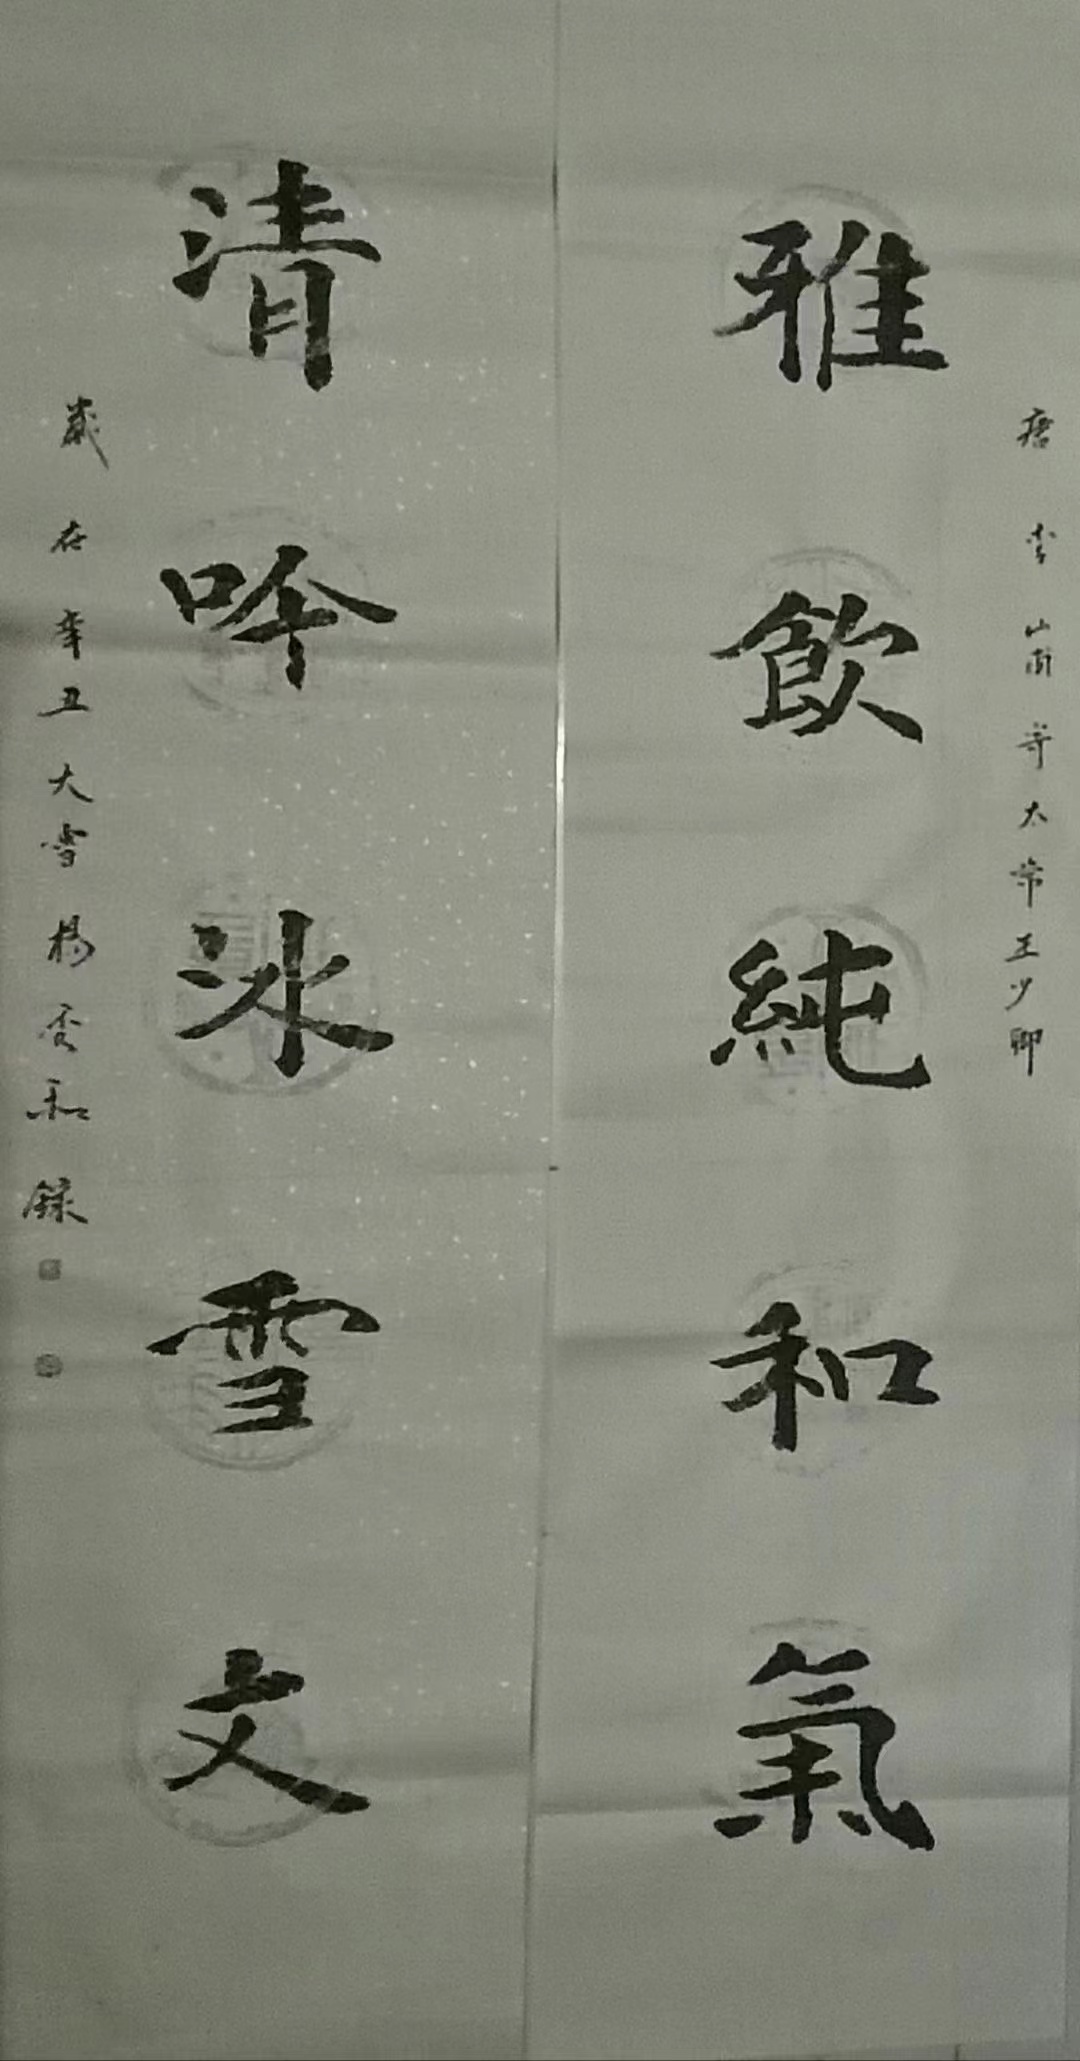 唐李山甫寄太常王少卿
雅飲純和氣
清吟冰雪文
歲在辛丑大雪楊雲和錄